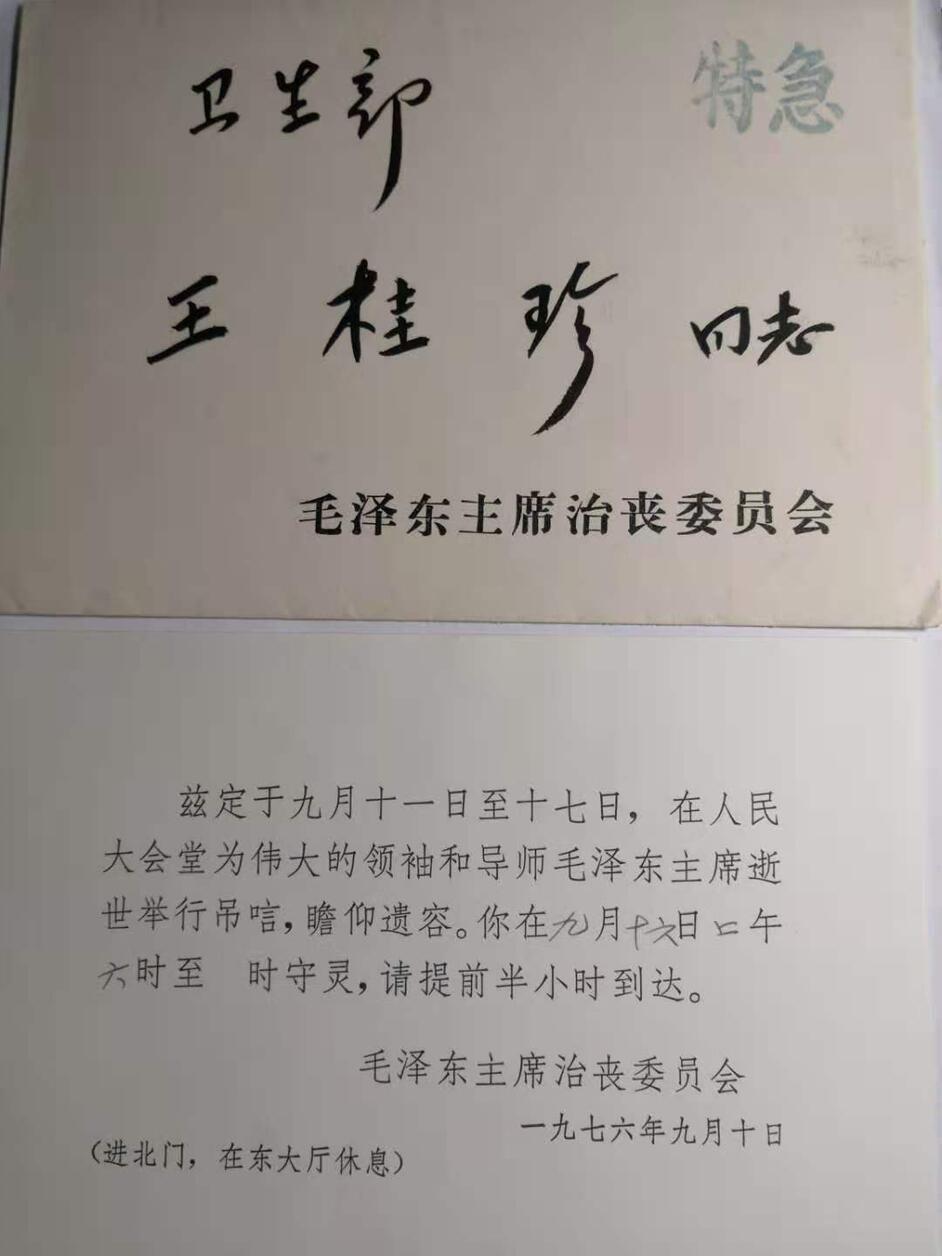 卫生部 特急
王桂珍同志
毛泽东主席治丧委员会
兹定于九月十一日至十七日，在人民
大会堂为伟大的领袖和导师毛泽东主席逝
世举行吊唁，瞻仰遗容。你在九月十六日午
六时至 时守灵，请提前半小时到达。
毛泽东主席治丧委员会
一九七六年九月十日
（进北门，在东大厅休息）